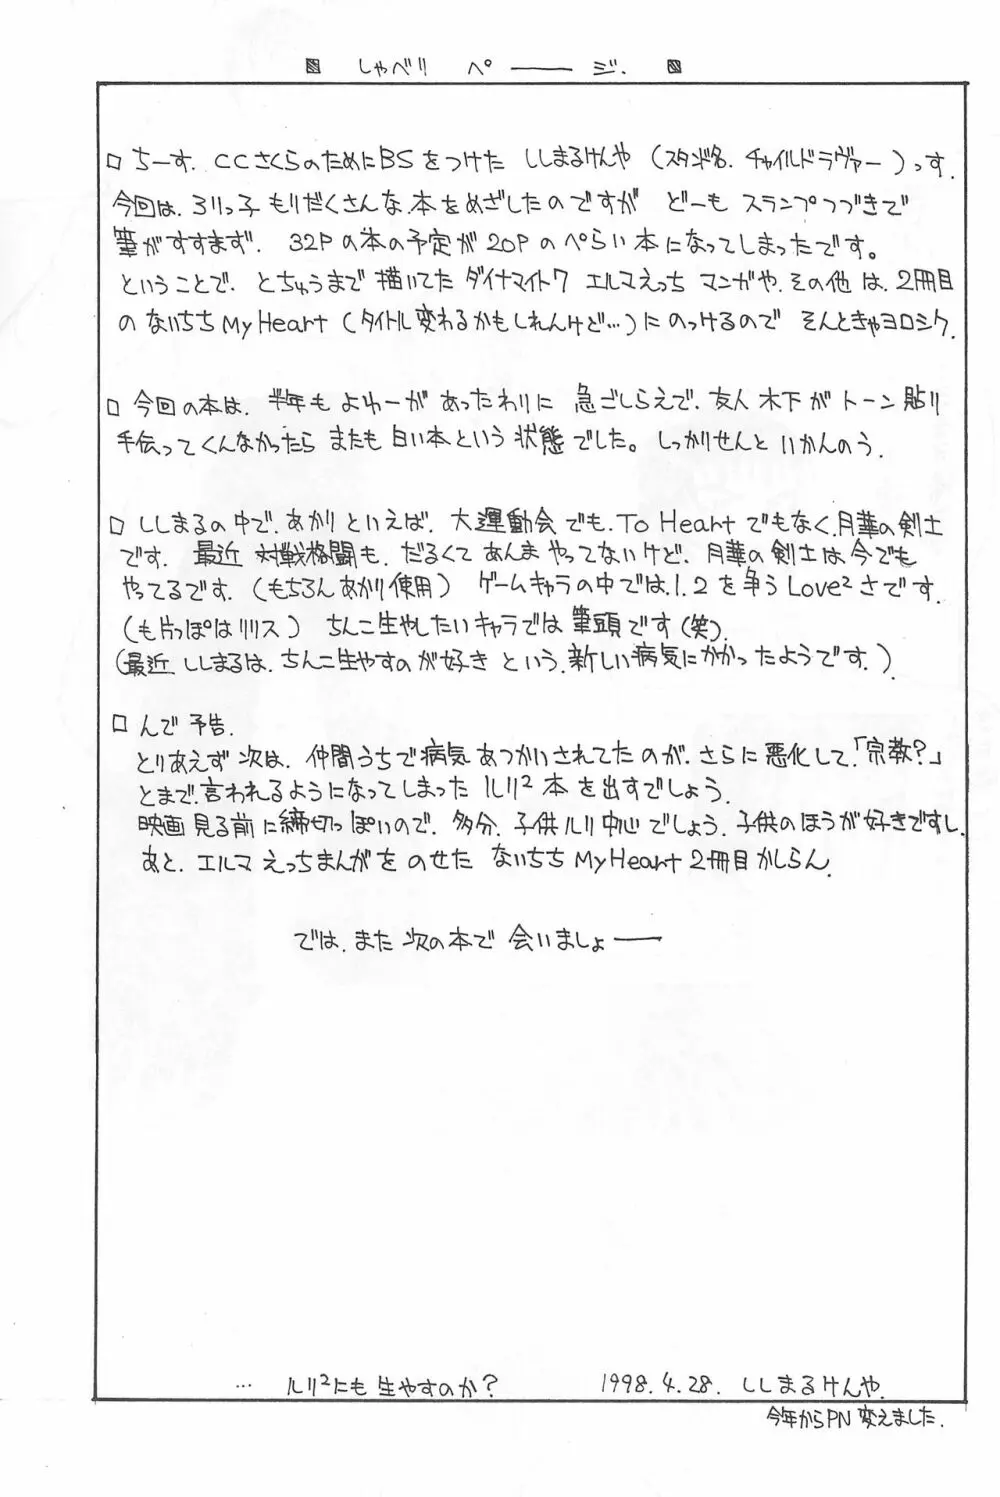 しゃべり ペ――ジ.
□ ちーす. CCさくらのためにBSをつけた ししまるけんや (スタンド名. チャイルドラヴァー)っす.
今回は. ろりっ子もりだくさんな. 本をめざしたのですが どーも スランプつづきで
筆がすすまず. 32Pの本の予定が20Pのぺらい本になってしまったです。
ということで. とちゅうまで描いてた ダイナマイト7 エルマえっち マンガや. その他は. 2冊目
の ないちち My Heart (タイトル変わるかもしれんけど…)にのっけるので そんときゃヨロシク.
□ 今回の本は. 半年も よゆーが あったわりに 急ごしらえで. 友人 木下が トーン貼り
手伝ってくんなかったら またも 白い本という 状態でした。 しっかりせんと いかんのう.
□ ししまるの中で. あかりといえば. 大運動会でも. To Heartでもなく. 月華の剣士
です. 最近 対戦格闘も. だるくて あんま やってないけど. 月華の剣士は今でも
やってるです. (もちろんあかり使用) ゲームキャラの中では. 1. 2を争うLove²さです.
(も片っぽはリリス) ちんこ生やしたいキャラでは 筆頭です(笑).
(最近 ししまるは. ちんこ生やすのが好き という. 新しい病気にかかったようです.)
□ んで 予告.
とりあえず 次は. 仲間うちで病気 あつかいされてたのが. さらに悪化して.「宗教?」
とまで. 言われるようになってしまった ルリ² 本を出すでしょう.
映画見る前に締切っぽいので. 多分. 子供ルリ中心でしょう. 子供のほうが好きですし.
あと. エルマ えっちまんがを のせた ないちち My Heart 2冊目かしらん.
では. また 次の本で 会いましょ――
… ルリ²にも 生やすのか? 1998. 4. 28. ししまるけんや.
今年からPN 変えました.